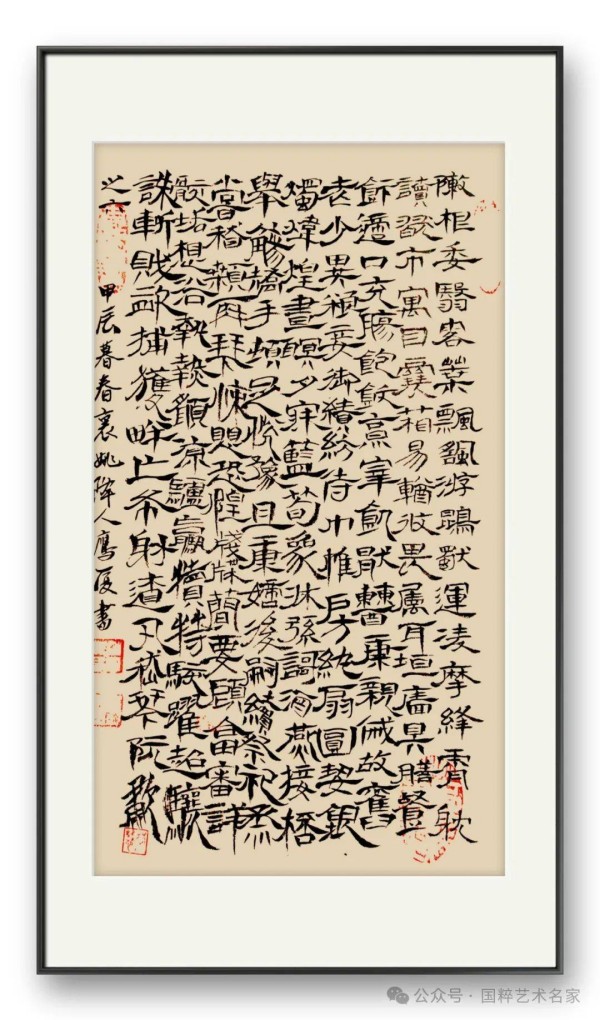 陳根委翳落葉飄颻游鵾獨運凌摩絳霄耽
讀翫市寓目囊箱易輶攸畏屬耳垣牆具膳餐
飯適口充腸飽飫烹宰飢厭糟糠親戚故舊
老少異糧妾御績紡侍巾帷房紈扇圓絜銀
燭煒煌晝瞑夕寐藍筍象牀弦謌酒讌接桮
舉觴矯手頓足悅豫且康嫡後嗣續祭祀烝
嘗稽顙再拜悚懼恐惶牋牒簡要顧答審詳
骸垢想浴執熱願涼驢騾犢特駭躍超驤
誅斬賊盜捕獲畔亡布射遼丸嵇琴阮嘯
之六
甲辰暮春襄姚人鷹厦書
公众号·国粹艺术名家